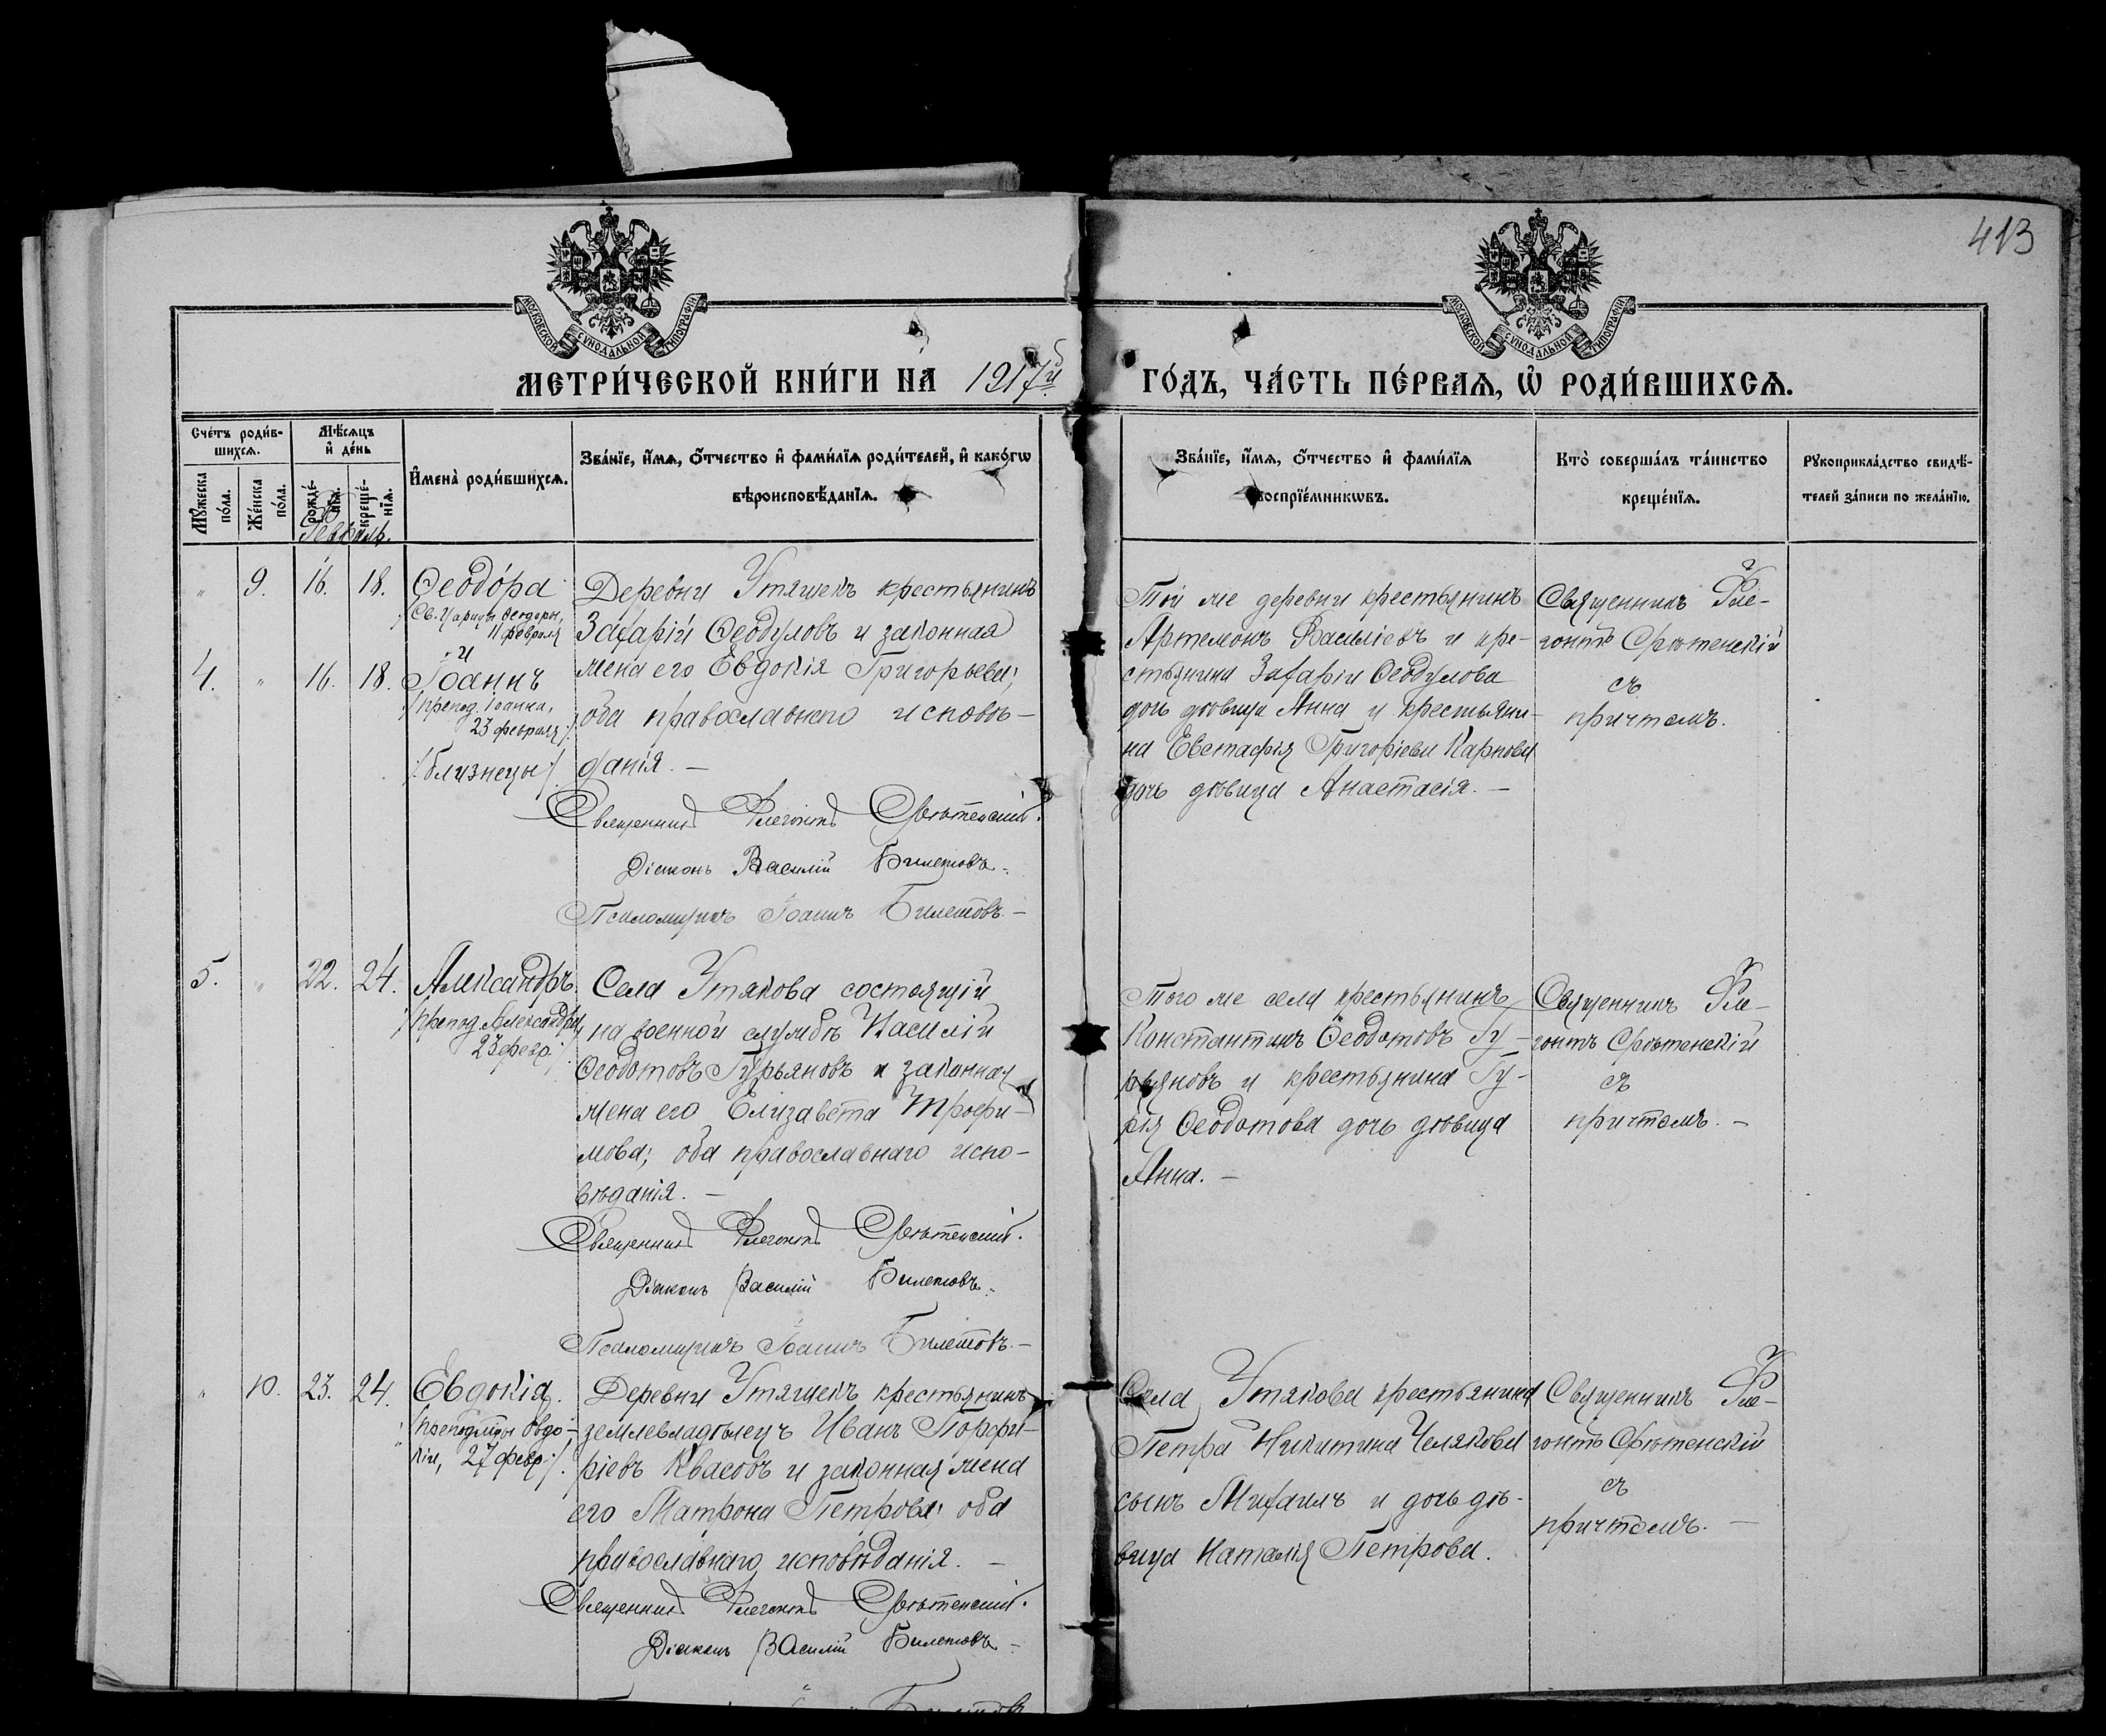 413
МОСКОВСКОЙ СѴНОДАЛЬНОЙ ТИПОГРАФІИ
МОСКОВСКОЙ СѴНОДАЛЬНОЙ ТИПОГРАФІИ
МЕТРИ́ЧЕСКОЙ КНИ́ГИ НА̀ 1917й
ГО́ДЪ, ЧА́СТЬ ПЕ́РВАѦ, Ѡ҆ РОДИ́ВШИХСѦ.
Сче́тъ роди́в-
шихсѧ.
Мѣ́сѧцъ
и҆ де́нь
Мꙋ́жеска
по́ла.
Же́нска
по́ла.
рожде́-
нїѧ.
креще́-
нїѧ.
И҆мена̀ роди́вшихсѧ.
Зва́нїе, и҆́мѧ, ѻ҆́тчество и҆ фами́лїѧ роди́телей, и҆ како́гѡ
вѣроисповѣ́данїѧ.
Зва́нїе, и҆́мѧ, ѻ҆́тчество и҆ фами́лїѧ
воспрїе́мникѡвъ.
Кто̀ соверша́лъ та́инство
креще́нїѧ.
Рꙋкоприкла́дство свидѣ́-
телей за́писи по жела́нїю.
Февраль.
" 9. 16. 18. Ѳеодо́ра
/Св. Царицы Ѳеодоры,
11 февраля
и
4. " 16. 18. Іоаннъ
/препод. Іоанна,
23 февраля/.
/:близнецы:/
Деревни Утяшекъ крестьянинъ
Захарій Ѳеодуловъ и законная
жена его Евдокія Григорьева;
оба православнаго исповѣ-
данія. —
Священникъ Флегонтъ Срѣтенскій.
Діаконъ Василій Билетовъ.
Псаломщикъ Іоаннъ Билетовъ. —
Той же деревни крестьянинъ
Артемонъ Василіевъ и кре-
стьянина Захаріи Ѳеодулова
дочь дѣвица Анна и крестьяни-
на Евстафія Григоріева Карпова
дочь дѣвица Анастасія. —
Священникъ Фле-
гонтъ Срѣтенскій
съ
причтомъ.
5. " 22. 24. Александръ
/препод. Александра,
23 февр:/.
Села Утякова состоящій
на военной службѣ Василій
Ѳеодотовъ Гурьяновъ и законная
жена его Елизавета Трофи-
мова; оба православнаго испо-
вѣданія. —
Священникъ Флегонтъ Срѣтенскій.
Діаконъ Василій Билетовъ.
Псаломщикъ Іоаннъ Билетовъ. —
Того же села крестьянинъ
Константинъ Ѳеодотовъ Гу-
рьяновъ и крестьянина Гу-
рія Ѳеодотова дочь дѣвица
Анна. —
Священникъ Фле-
гонтъ Срѣтенскій
съ
причтомъ. —
" 10. 23. 24. Евдокія.
Евдо-
кіи, 27 февр:/.
Деревни Утяшекъ крестьянинъ
землевладѣлецъ Иванъ Порфи-
ріевъ Квасовъ и законная жена
его Матрона Петрова; оба
православнаго исповѣданія. —
Священникъ Флегонтъ Срѣтенскій.
Діаконъ Василій Билетовъ. —
Села Утякова крестьянина
Петра Никитина Челякова
сынъ Михаилъ и дочь дѣ-
вица Наталія Петрова.
Священникъ Фле-
гонтъ Срѣтенскій
съ
причтомъ. —